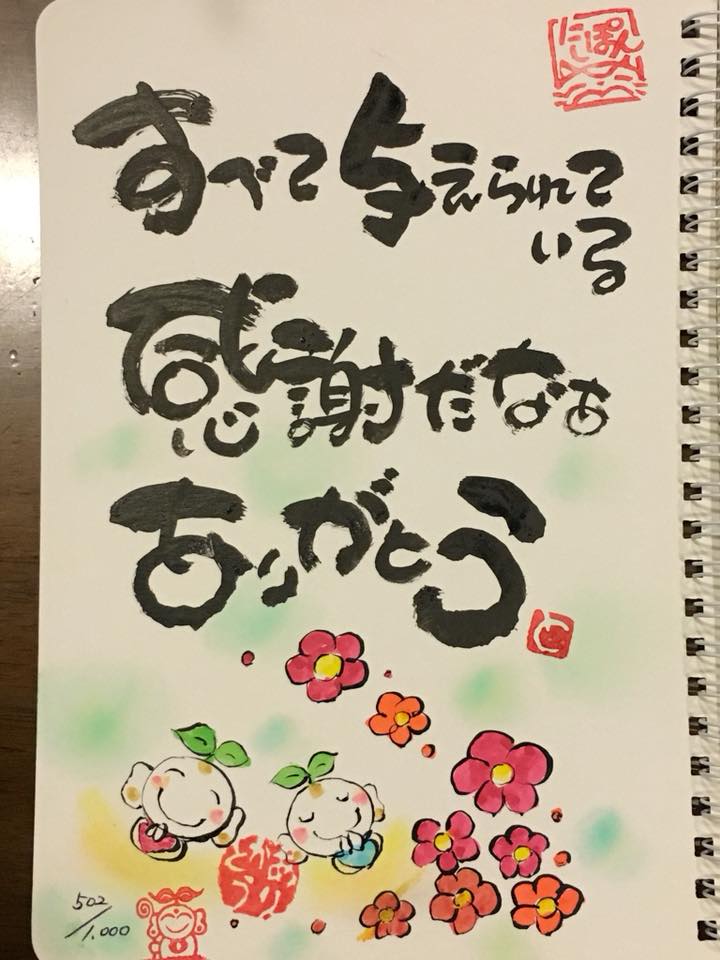 にしぽん
すべて与えられて
いる
感謝だなぁ
ありがとう
502
/1.000